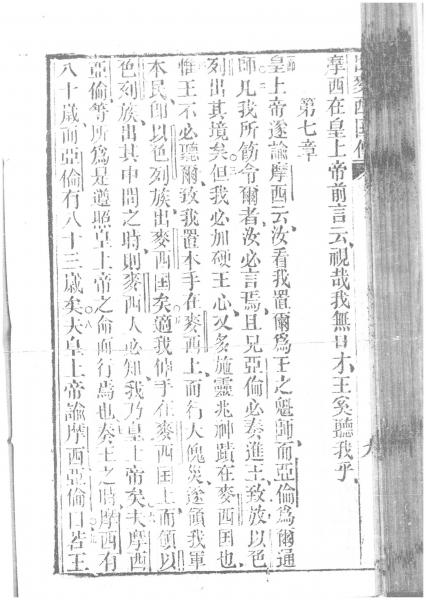 摩西在皇上帝前言云視哉我無口才王奚聽我乎
第七章
皇上帝遂諭摩西云汝看我置爾為王之魁師而亞倫為爾通
師凡我所飭令爾者汝必言焉且兄亞倫必奏進王致放以色
列出其境矣但我必加硬王心又多施靈兆神蹟在麥西国也
惟王不必聽爾致我置本手在麥西上而行大愧災遂領我軍
本民即以色列族出麥西国矣適我伸手在麥西国上而領以
色列族出其中間之時則麥西人必知我乃皇上帝矣夫摩西
亞倫等所為是遵照皇上帝之命而行焉也奏王之時摩西有
八十歲而亞倫有八十三歲矣夫皇上帝諭摩西亞倫曰若王